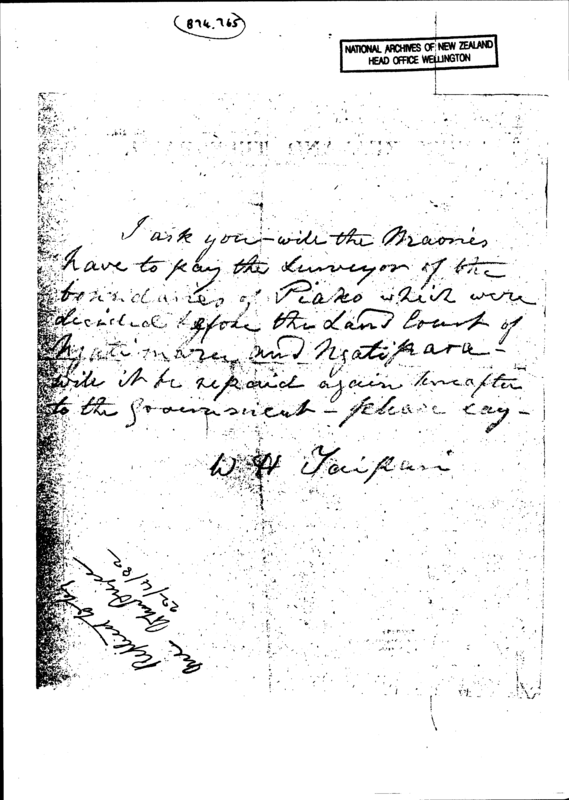 874.765
NATIONAL ARCHIVES OF NEW ZEALAND
HEAD OFFICE WELLINGTON
I ask you - will the Maories
have to pay the Surveyor of the
boundaries of Piako which were
decided before the Land Court of
Ngatimaru and Ngatipaoa -
will it be repaid again hereafter
to the Government - please say -
W H Taipari
Replied to by
22/4/82